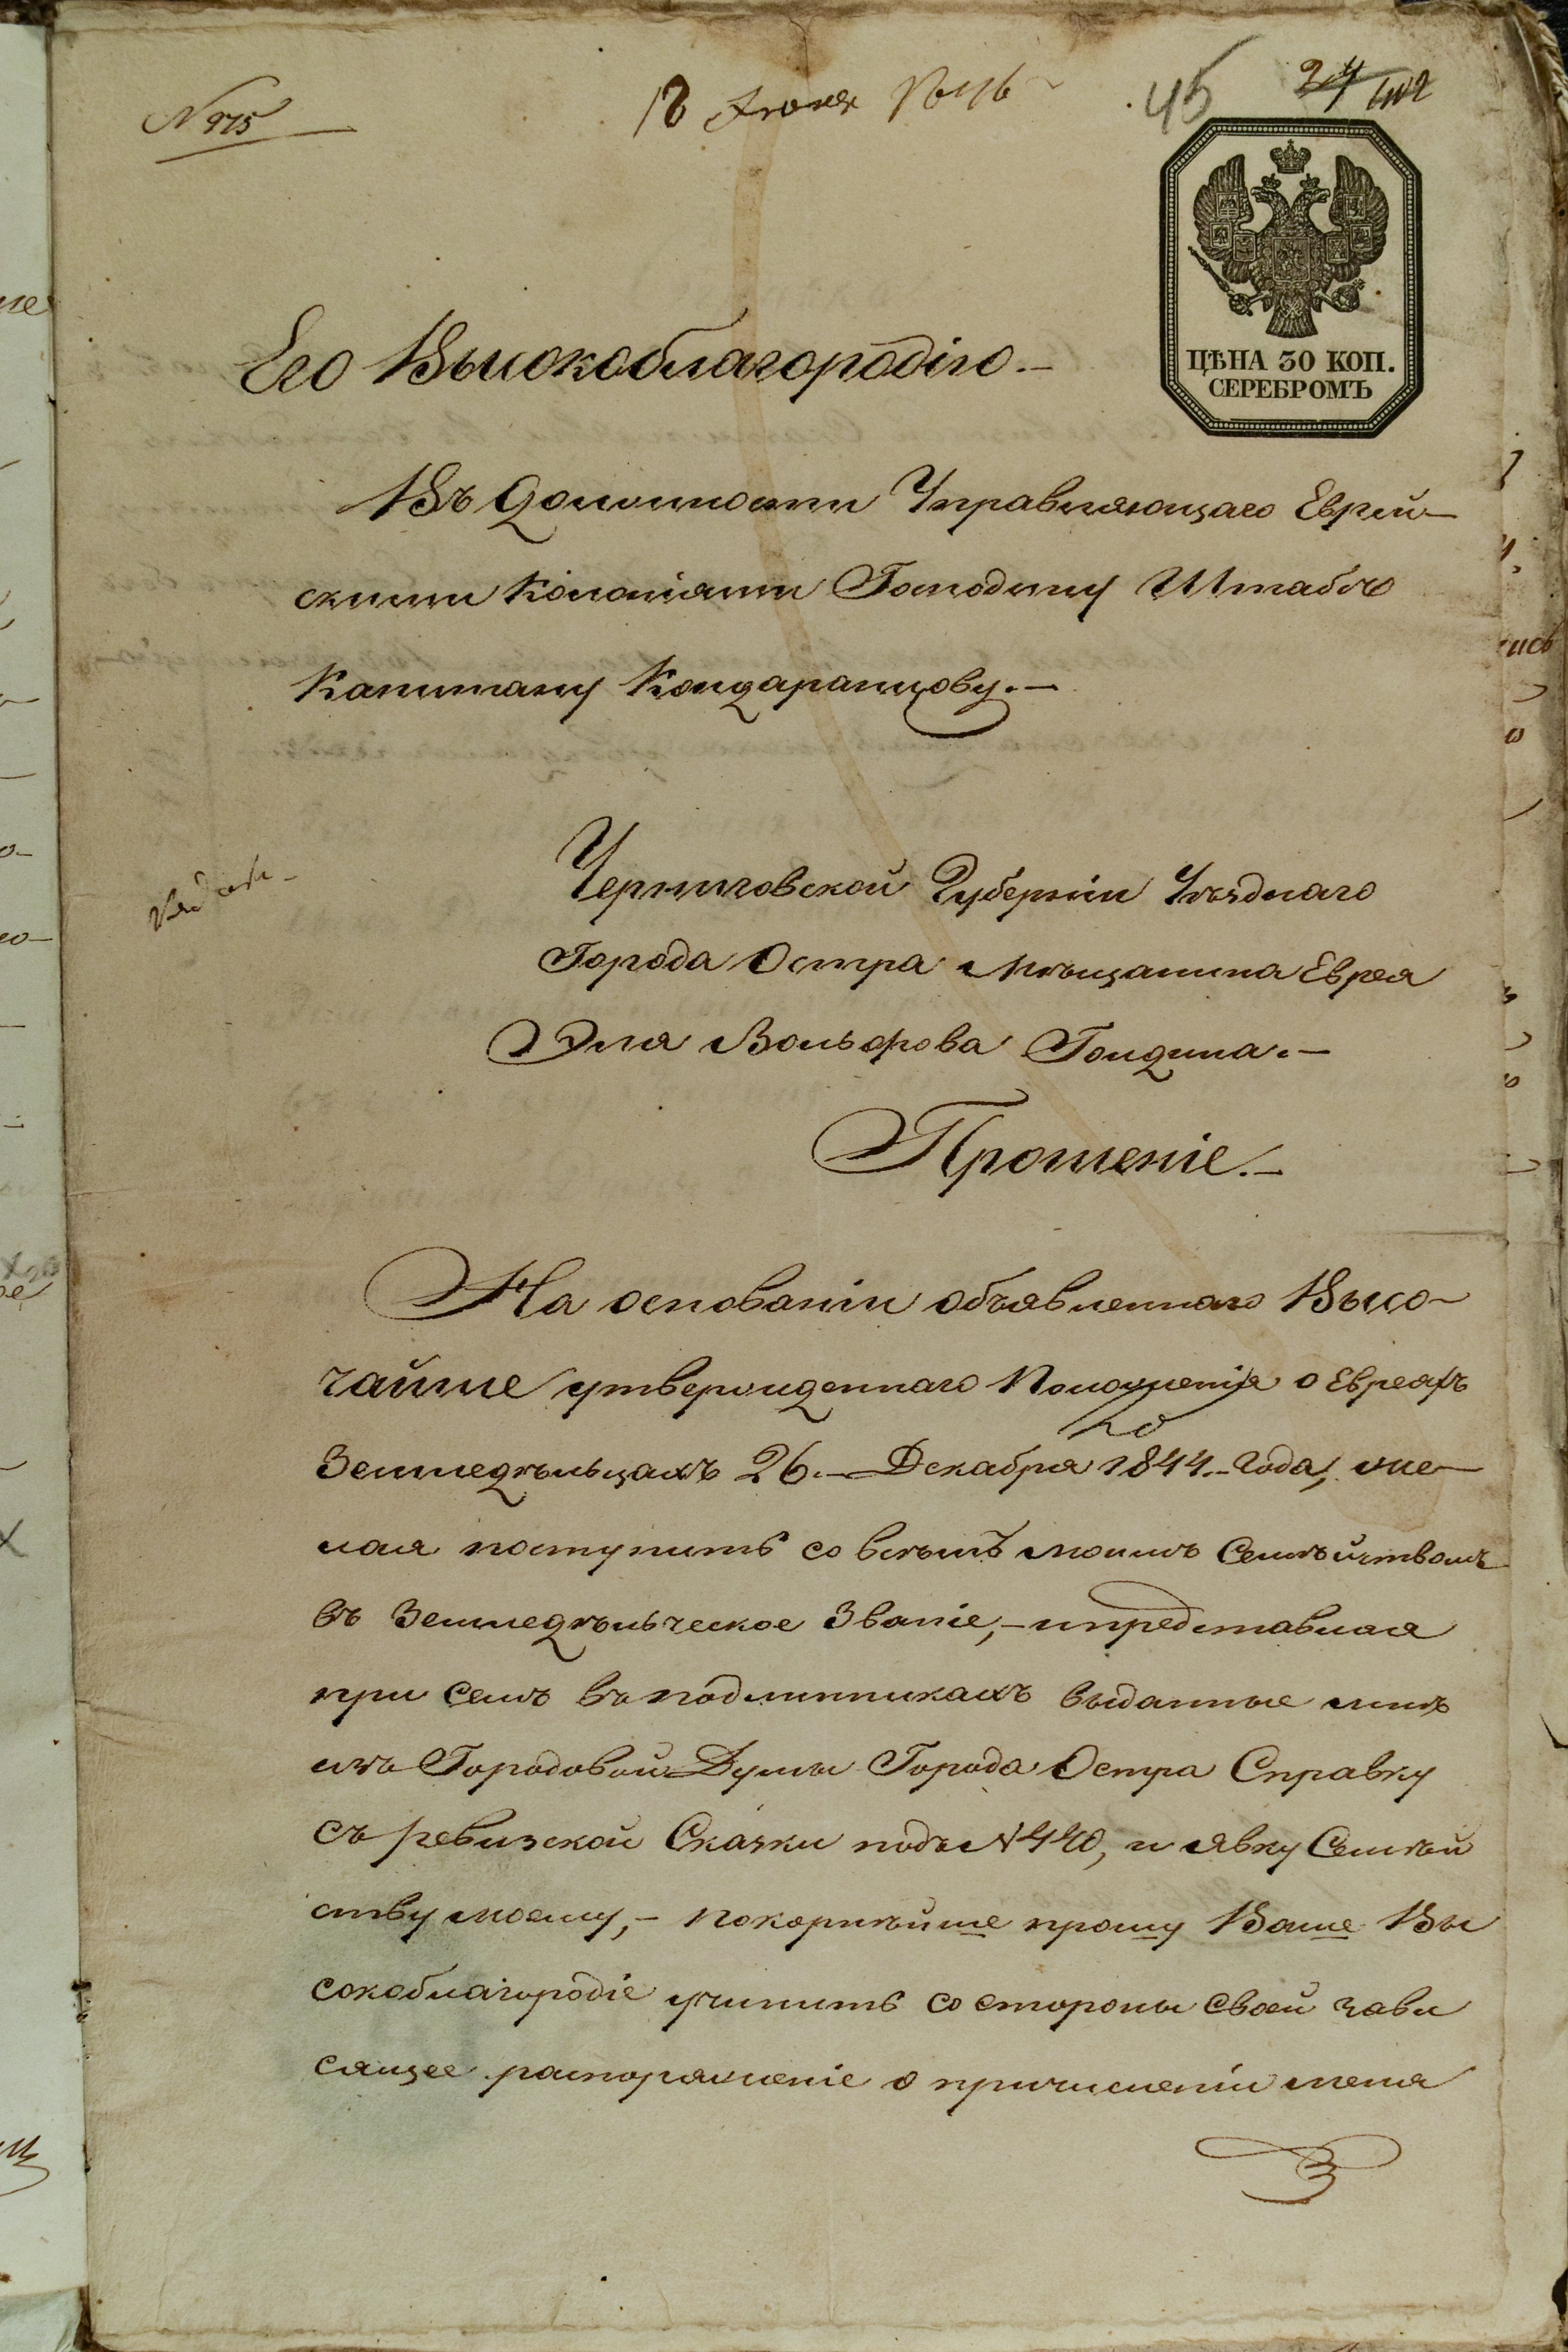 N 975
18 Июня 1846
45
402
ЦѢНА 30 КОП.
СЕРЕБРОМЪ
Его Высокоблагородію.—
Въ должности Управляющаго Еврей-
скими Колоніями Господину Штабсъ
Капитану Кондаранцову.—
Черниговской Губерніи Уѣзднаго
Города Остра Мѣщанина Еврея
Эля Вольфова Голдина.—
Прошеніе.—
На основаніи объявленнаго Высо-
чайше утвержденнаго Положенія о Евреяхъ
Земледѣльцахъ 26.— Декабря 1844.— Года, же-
лая поступить со всѣмъ моимъ Семѣйствомъ
въ Земледѣльческое Званіе,— и представляя
при семъ въ подлинникахъ выданные мнѣ
изъ Городовой Думы Города Остра Справку
съ ревизской Сказки подъ N 440, и явку Семѣй
ству моему,— покорнѣйше прошу Ваше Вы
сокоблагородіе учинить со стороны своей зави
сящее распоряженіе о причисленіи меня